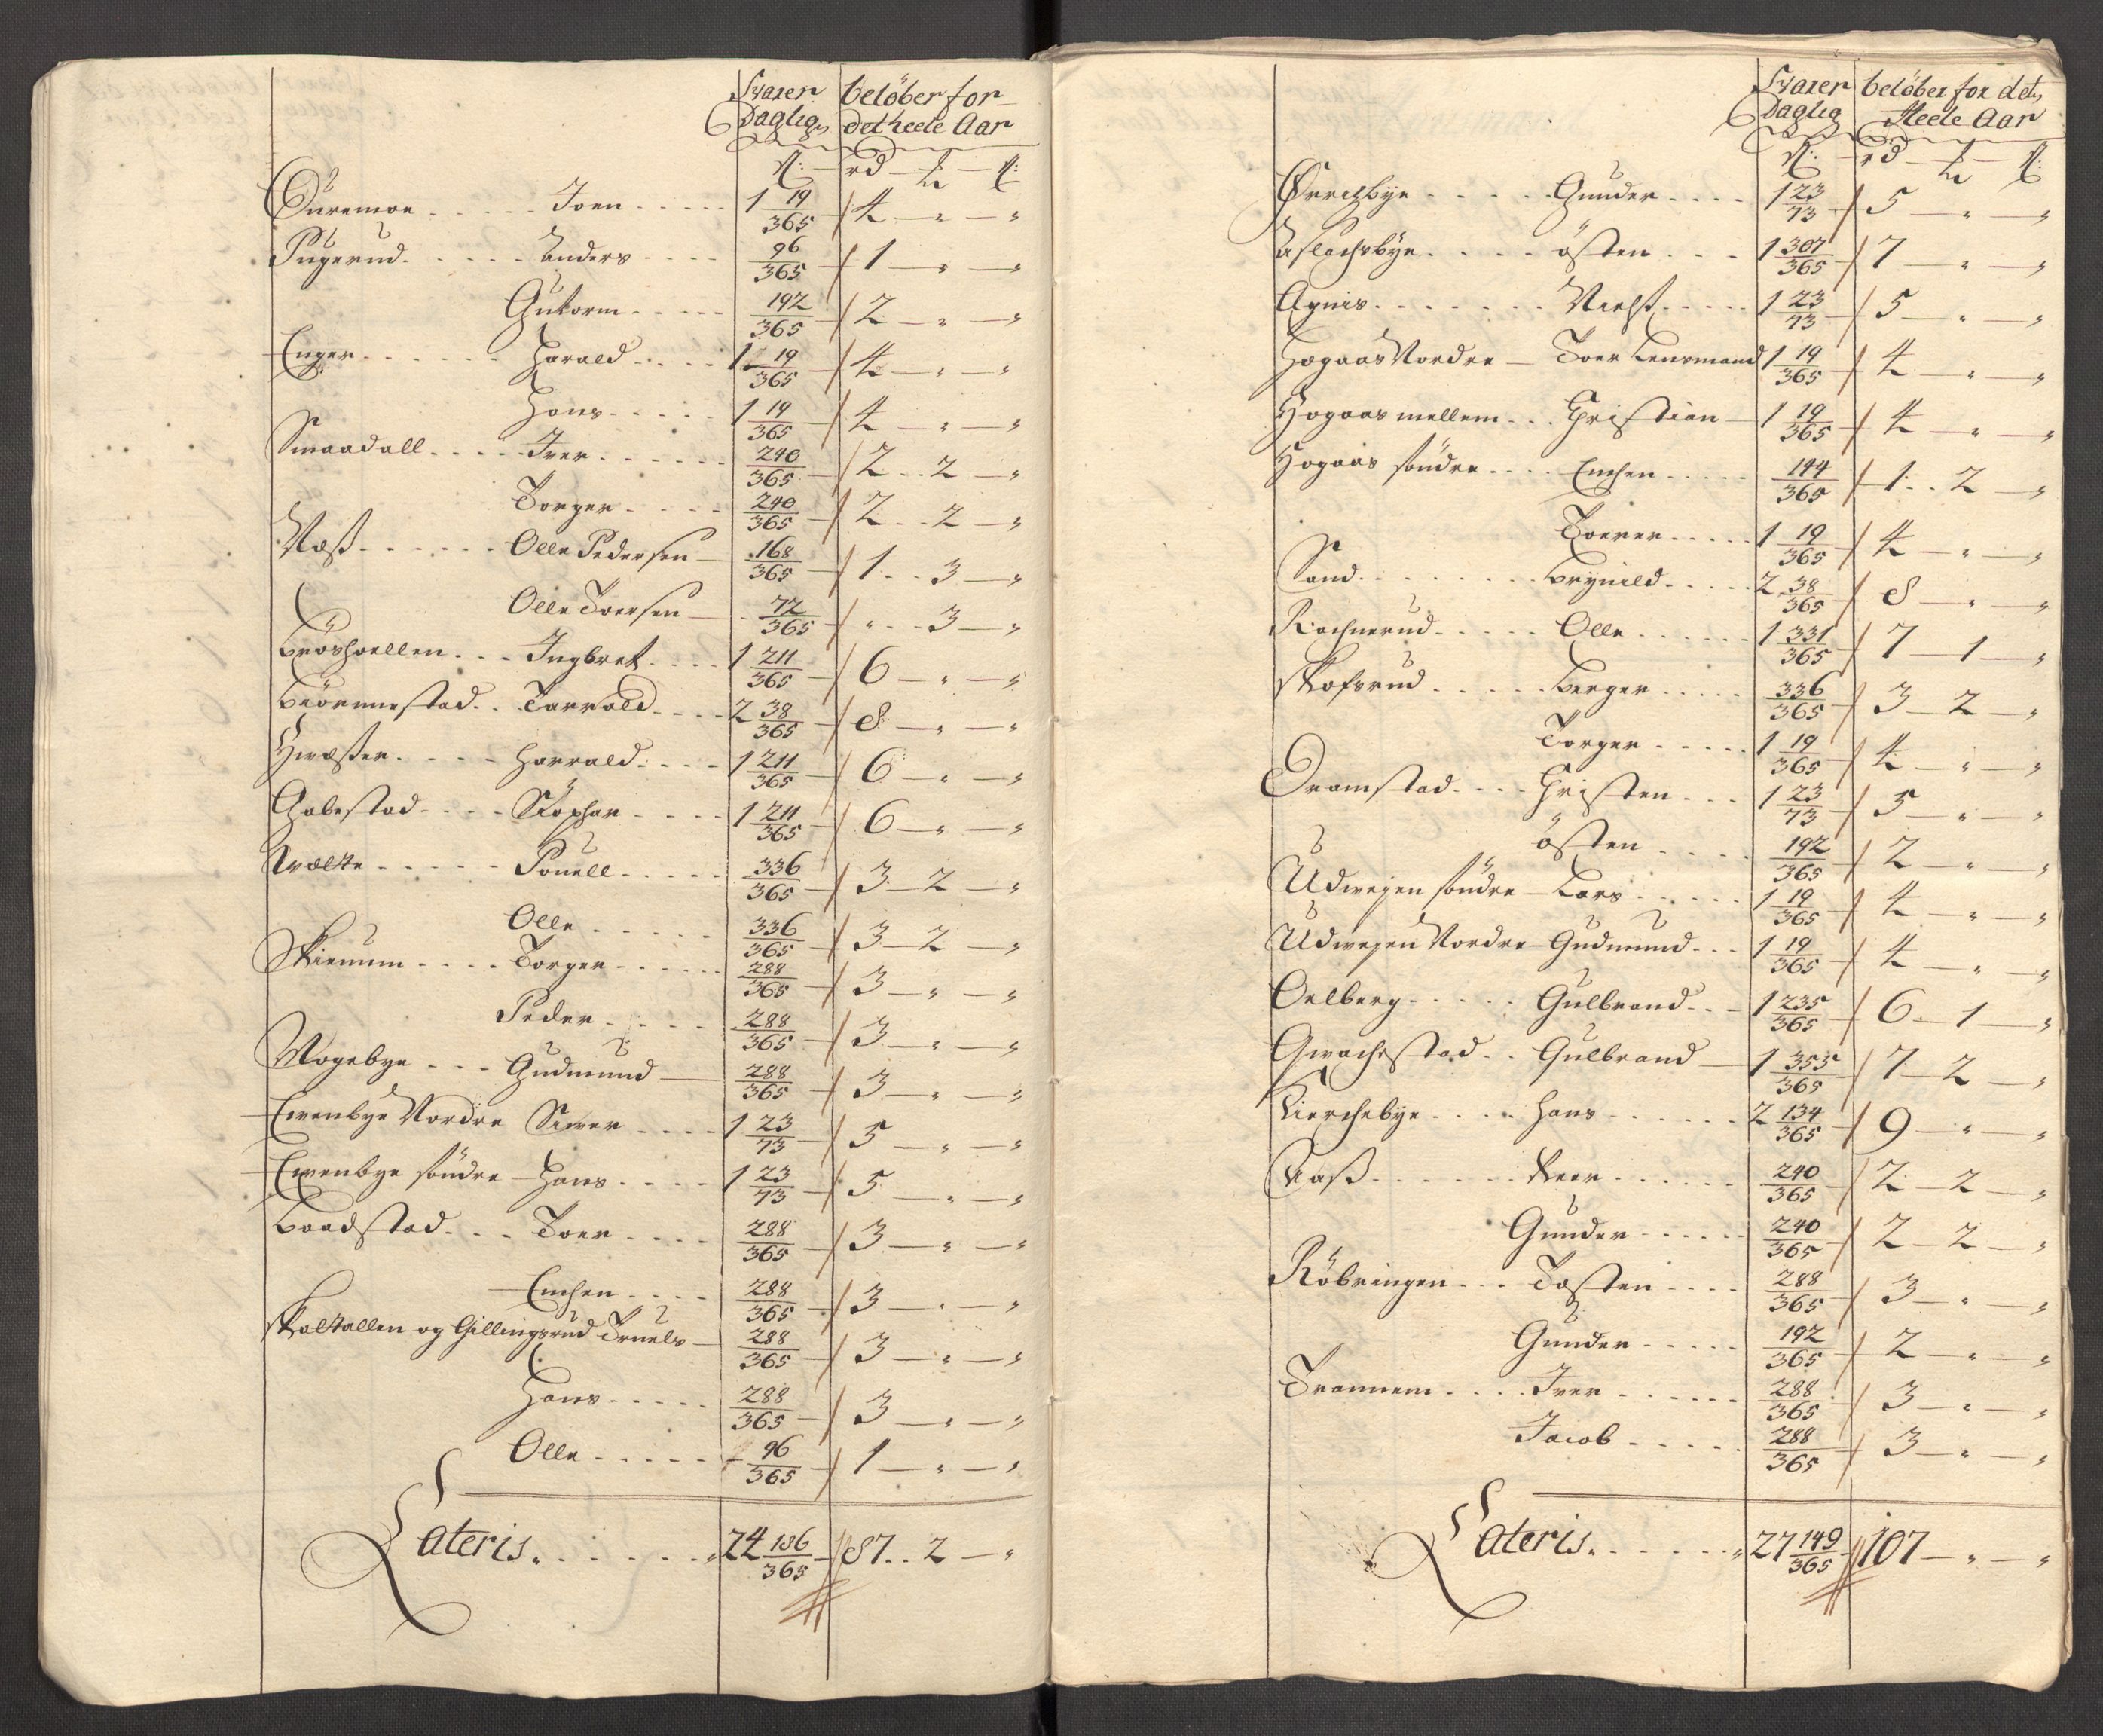 Svarer beløber for
Daglig det heele Aar
ß: rd — ₰ — ß:
Duremoe - - - - - Joen - - - - - 1 19/365 4 — " — "
Pugerud - - - - - Anders - - - - 96/365 1 — " — "
Gutorm - - - - - 192/365 2 — " — "
Enger - - - - - - Harald - - - - 1 19/365 4 — " — "
Hans - - - - - 1 19/365 4 — " — "
Smaadall - - - - Iver - - - - - - 240/365 2 - - 2 — "
Torger - - - - 240/365 2 - - 2 — "
Næß - - - - - - Olle Pedersen — 168/365 1 - - 3 — "
Olle Toersen — 72/365 " - - - 3 — "
Ingbret - - - - 1 211/365 6 — " — "
Biørnnestad - - Tarrald - - - - 2 38/365 8 — " — "
Harrald - - - - 1 211/365 6 — " — "
Gabestad - - - - 1 211/365 6 — " — "
Pouell - - - - - 336/365 3 — 2 — "
Olle - - - - - - 336/365 3 — 2 — "
Skienum - - - - Torger - - - - - - 288/365 3 — " — "
Peder - - - - - 288/365 3 — " — "
Mogebye - - - Gudmund — 288/365 3 — " — "
Evenbye Nordre Siver - - - - 1 23/73 5 — " — "
Evenbye søndre — Hans - - - - 1 23/73 5 — " — "
Baadstad - - - Toer - - - - 288/365 3 — " — "
Enchen - - - - 288/365 3 — " — "
Skaltallen og Gillingsrud Truels — 288/365 3 — " — "
Hans - - - - - 288/365 3 — " — "
Olle - - - - - 96/365 1 — " — "
Lateris - - - - - - " 24 186/365 87 - - 2 — "
Svarer beløber for det
Daglig Heele Aar
ß: — rd — ₰ — ß:
Ørrechbye - - - - - Gunder - - - - 1 23/73 5 — " — "
Aslachsbye - - - - østen - - - 1 307/365 7 — " — "
Agnis - - - - - - - Nielß - - - - 1 23/73 5 — " — "
Hogaas Nordre — Toer Lensmand 1 19/365 4 — " — "
Hogaas mellem - - - Christian — 1 19/365 4 — " — "
Hogaas søndre - - - - Enchen - - - - - 144/365 1 - - 2 — "
Toerer - - - - - 1 19/365 4 — " — "
Sand - - - - - - - - Brynild - - - - - 2 38/365 8 — " — "
Rochnerud - - - - - Olle - - - - - - 1 331/365 7 — 1 — "
Skofsrud - - - - - Berger - - - - - 336/365 3 — 2 — "
Torger - - - - - 1 19/365 4 — " — "
Dramstad - - - - Christen - - - 1 23/73 5 — " — "
østen - - - - 192/365 2 — " — "
Udvejen søndre — Lars - - - - - 1 19/365 4 — " — "
Udvejen Nordre — Gudmund - - - 1 19/365 4 — " — "
Oelberg - - - - - Gulbrand - - - 1 235/365 6 - - 1 — "
Gvachestad - - Gulbrand — 1 355/365 7 — 2 — "
Kierchebye - - - - Hans - - - - - - 2 134/365 9 — " — "
Peer - - - - - - 240/365 2 — 2 — "
Gunder - - - - - - 240/365 2 — 2 — "
Røbringen - - - Tosten - - - - 288/365 3 — " — "
Gunder - - - - - 192/365 2 — " — "
Trannem - - - - Iver - - - - - - 288/365 3 — " — "
Jacob - - - - - 288/365 3 — " — "
Lateris - - - - - - " 27 149/365 107 — " — "